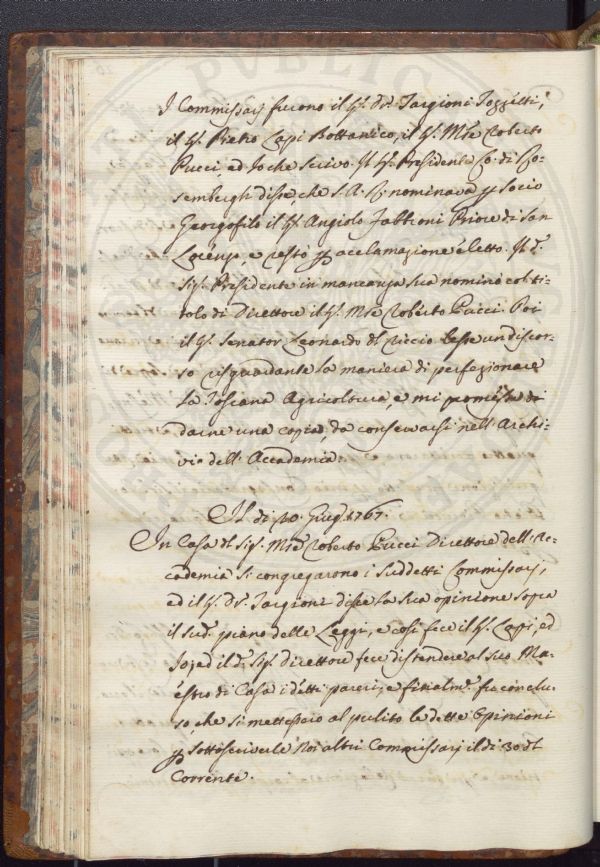 I Commissarj furono il Sg.r Dr. Targioni Tozzetti,
il Sg.r Pietro Lapi Bottanico, il Sg.r M.se Roberto
Pucci, ed Io che scrivo. Il Sg.r Presidente Co: di Ro-
sembergh disse, che S. A. R. nominava p Socio
Georgofilo il Sg.r Angiolo Fabbroni Priore di San
Lorenzo, e restò p acclamazione eletto. Il d.o
Sig.r Presidente in mancanza sua nominò col ti-
tolo di Direttore il Sg.r M.se Roberto Pucci. Poi
il Sg.r Senator Leonardo del Riccio lesse un discor-
so risguardante la maniera di perfezionare
la Toscana Agricoltura, e mi promesse di
darne una copia, da conservarsi nell'Archi-
vio dell'Accademia
Il dì 20. Giug.o 1767.
In Casa del Sig.r M.se Roberto Pucci Direttore dell'Ac-
cademia si congregarono i suddetti Commissarj,
ed il Sg.r Dr. Targioni disse la sua opinione sopra
il sud.o piano delle Leggi, e così fece il Sg.r Lapi, ed
Io, ed il d.o Sig.r direttore fece distendere al suo Ma-
estro di Casa i detti pareri, e finalm.e fu conclu-
so, che si mettessero al pulito le dette Opinioni
p sottoscriverle Noi altri Commissarj il dì 30 del
Corrente.